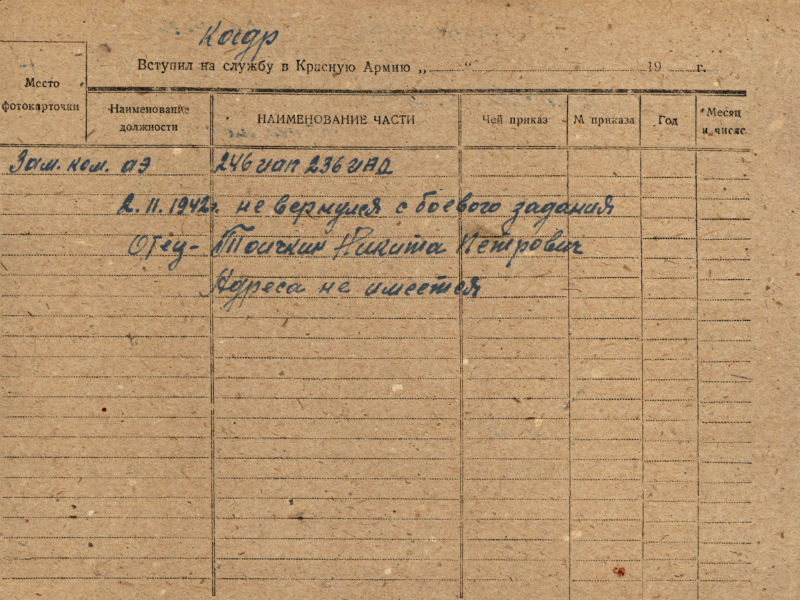 Кадр
Вступил на службу в Красную Армию „ “ 19 г.
Место
фотокарточки
Наименование
должности
НАИМЕНОВАНИЕ ЧАСТИ
Чей приказ
№ приказа
Год
Месяц
и число
Зам. ком. аэ 246 иап 236 иад
2.11.1942г. не вернулся с боевого задания
Отец - Точкин Никита Петрович
Адреса не имеется